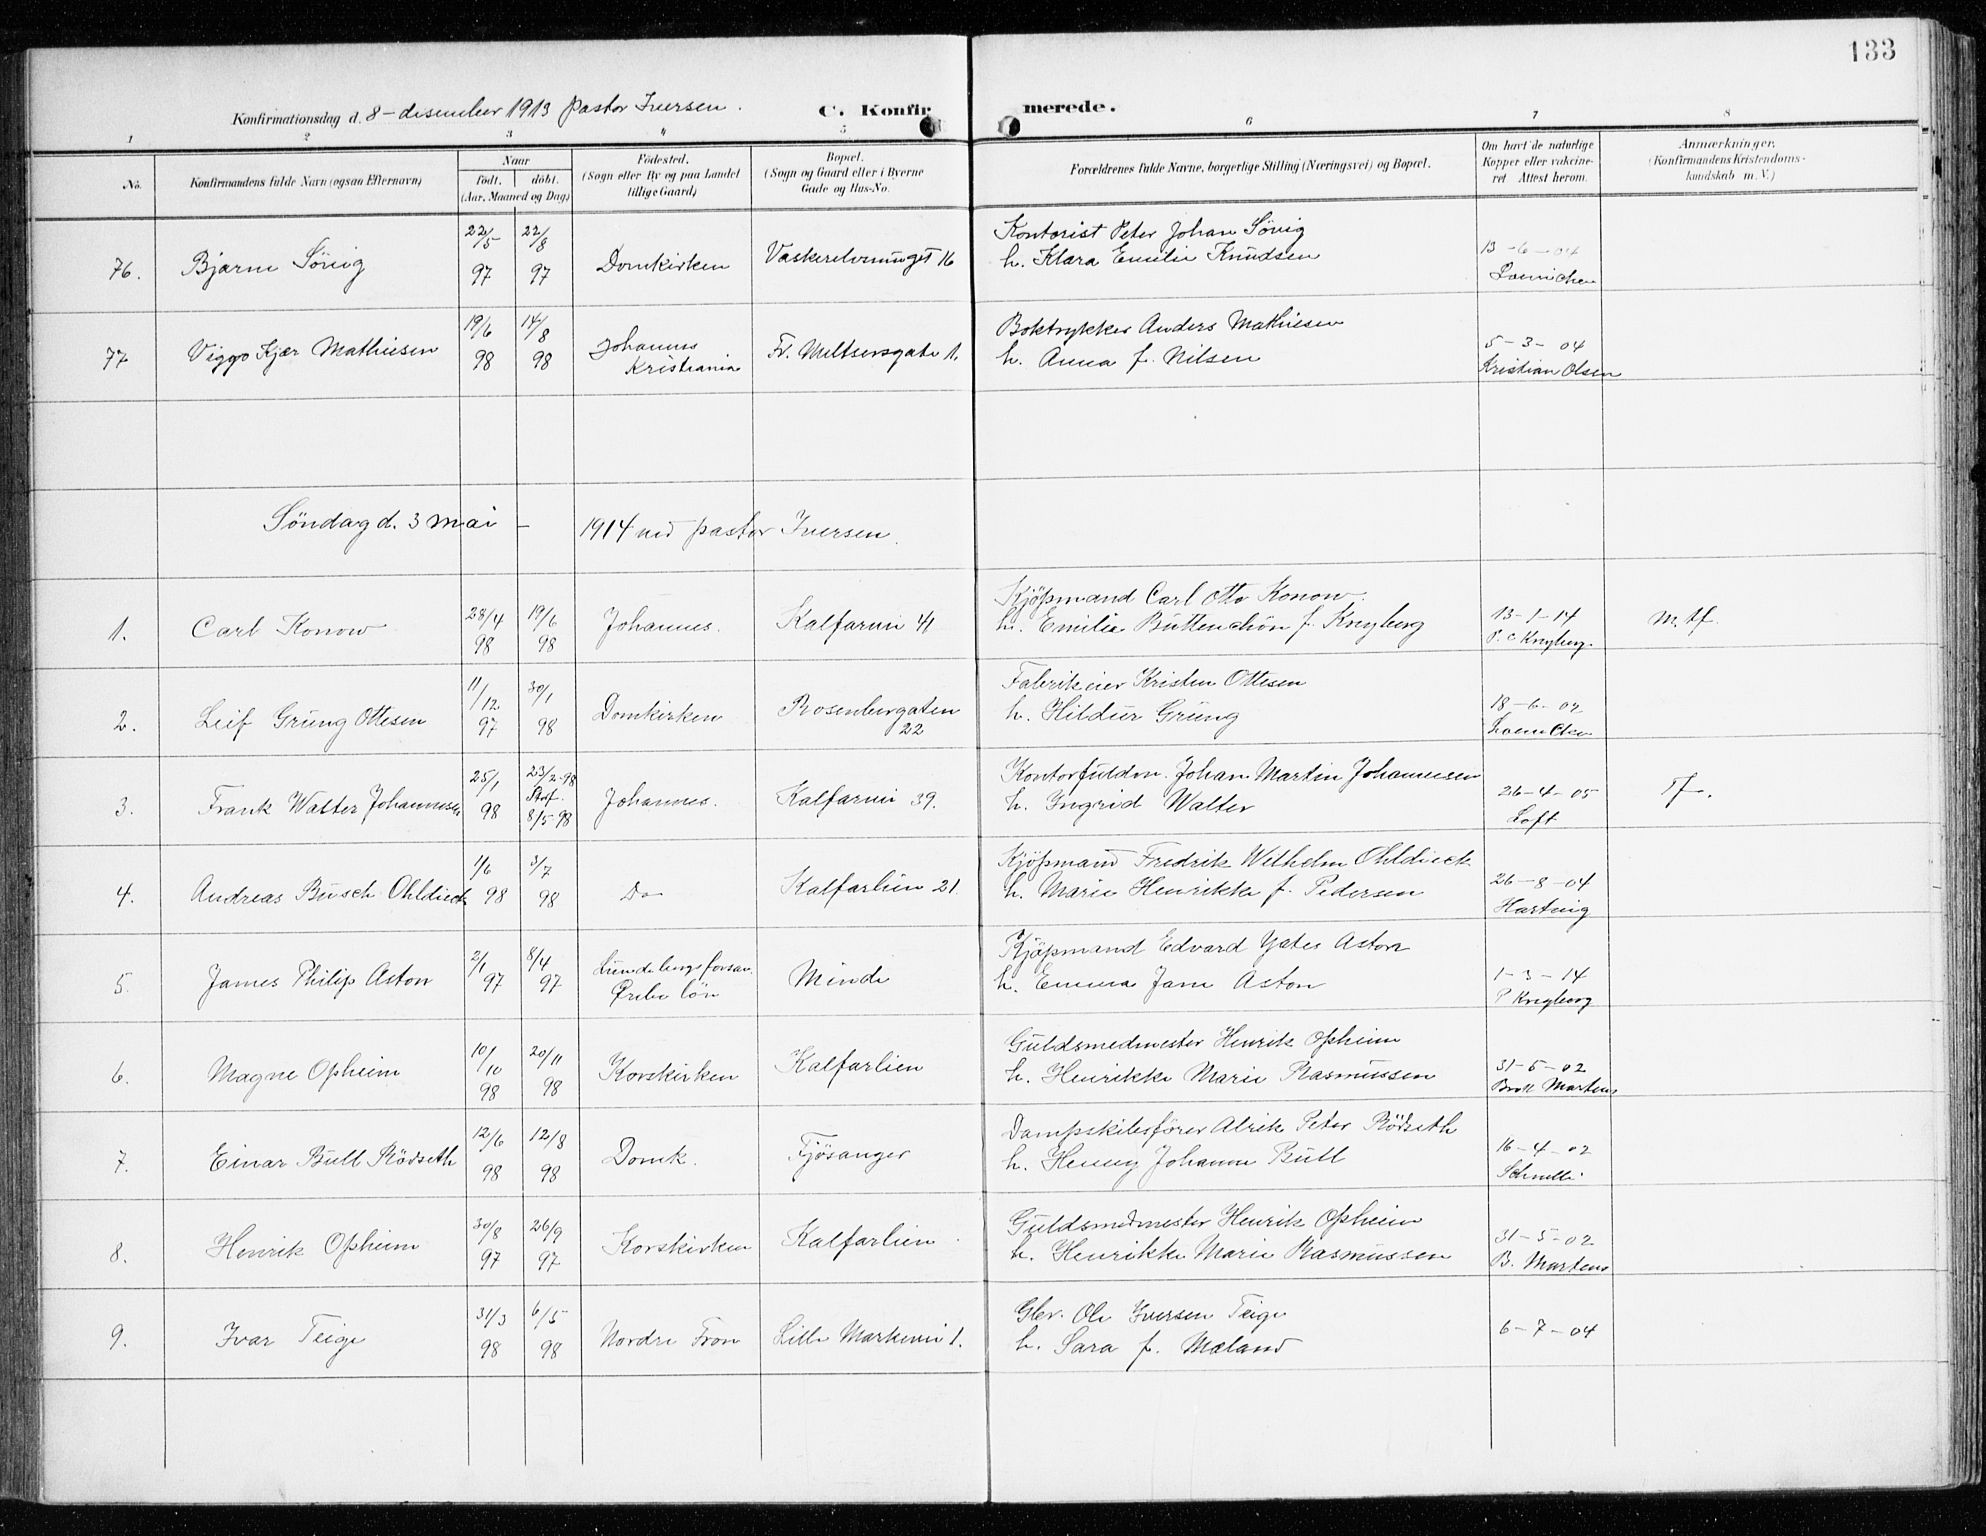 133
Konfirmationsdag d. 8 - desember 1913 pastor Iversen.
C. Konfirmerede.
1 2 3 4 5 6 7 8
No. Konfirmandens fulde Navn (ogsaa Efternavn) Naar födt. döbt. (Aar, Maaned og Dag) Födested. (Sogn eller By og paa Landet tillige Gaard) Bopæl. (Sogn og Gaard eller i Byerne Gade og Hus-No. Forældrenes fulde Navne, borgerlige Stilling (Næringsvei) og Bopæl. Om havt de naturlige Kopper eller vakcineret Attest herom. Anmærkninger, (Konfirmandens Kristendomskundskab m. V.)
76. Bjarne Sörig 22/5 97 22/8 97 Domkirken 16 Kontorist Peter Johan Sörig
h. Klara Emilie Knudsen 13-6-04
77 Viggo Kjær Mathiesen 19/6 98 14/8 98 Johannes Kristiania Fr. Meltzersgate 1. Boktrykker Anders Mathiesen
h. Anna f. Nilsen 5-3-04 Kristian Olsen
Söndag d. 3 mai - 1914 ved pastor Iversen.
1. Carl Konow 28/4 98 19/6 98 Johannes. Kalfarvei 41 Kjöpmand Carl Otto Konow.
h. Emilie Büttenchön f. Kreyberg 13-1-14 P. C Kreyberg. M. tf.
2. Leif Grung Ottesen 11/12 97 30/1 98 Domkirken Rosenbergaten 22 Fabrikeier Kristen Ottesen
h. Hildur Grung 18-6-02
3. Frank Walter Johannesen 25/1 98 23/2-98 Stadf. 8/5-98 Johannes. Kalfarvei 39. Kontorfuldm. Johan Martin Johannesen
h. Ingrid Walter 26-4-05 Loft Tf.
4. Andreas Busch Ohldieck 1/6 98 3/7 98 Do Kalfarlien 21 Kjöpmand Fredrik Wilhelm Ohldieck
h. Marie Henrikke f. Pedersen 26-8-04 Hartvig
5. James Philip Aston 2/1 97 8/4 97 Lundebergs forsam. Örebo län Minde Kjöpmand Edvard Yates Aston
h. Emma Jane Aston 1-3-14 P Kreyberg
6. Magne Opheim 10/10 98 20/11 98 Korskirken Kalfarlien Guldsmedmester Henrik Opheim
h. Henrikke Marie Rasmussen 31-5-02 Martens
7. Einar Bull Rödseth 12/6 98 12/8 98 Domk. Fjösanger Dampskibsförer Alrik Peter Rödseth
h. Henny Johanne Bull 16-4-02
8. Henrik Opheim 30/8 97 26/9 97 Korskirken Kalfarlien Guldsmedmester Henrik Opheim
h. Henrikke Marie Rasmussen 31-5-02 B. Martens
9. Ivar Teige 31/3 98 6/5 98 Nordre Fron Lille Markevei 1. Gbr. Ole Iversen Teige
h. Sara f. Mæland 6-7-04